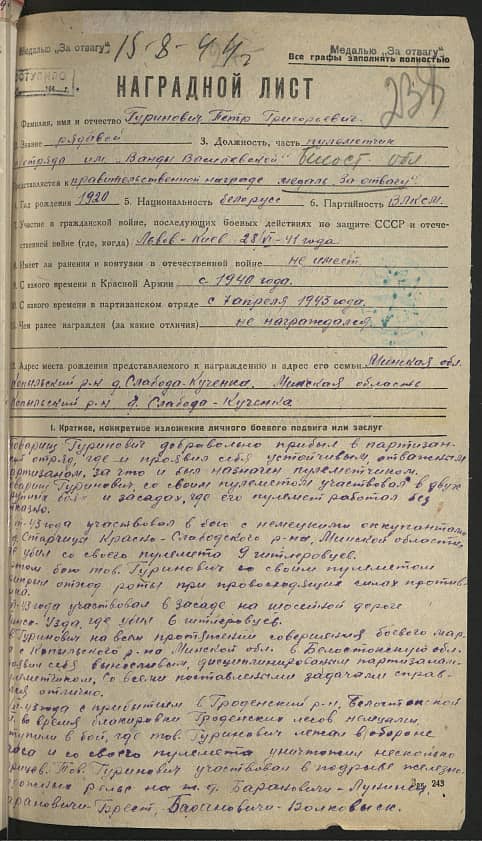 Медалью „За отвагу"
15-8-44 г.
Медалью „За отвагу"
Все графы заполнять полностью
НАГРАДНОЙ ЛИСТ
1. Фамилия, имя и отчество Гуринович Петр Григорьевич.
2. Звание рядовой 3. Должность, часть пулеметчик
отряда им. „Ванды Василевской" Белост. обл.
Представляется к правительственной награде медаль „За отвагу"
4. Год рождения 1920 5. Национальность белорусс 6. Партийность ВЛКСМ.
7. Участие в гражданской войне, последующих боевых действиях по защите СССР и отече-
ственной войне (где, когда) Львов-Киев 28/VI-41 года
8. Имеет ли ранения и контузии в отечественной войне не имеет.
9. С какого времени в Красной Армии с 1940 года.
10. С какого времени в партизанском отряде с 7 апреля 1943 года.
11. Чем ранее награжден (за какие отличия) не награждался.
12. Адрес места рождения представляемого к награждению и адрес его семьи Минская обл.
Копыльский р-н д. Слабода-Кученка. Минская область
Копыльский р-н д. Слабода-Кученка
1. Краткое, конкретное изложение личного боевого подвига или заслуг
Товарищ Гуринович добровольно прибыл в партизан-
ский отряд, где и проявил себя устойчивым, отважным
партизаном, за что и был назначен пулеметчиком.
Товарищ Гуринович со своим пулеметом участвовал в двух
боях и засадах, где его пулемет работал без
отказно.
43 года участвовал в бою с немецкими оккупантами
д. Старчица Красно-Слабодского р-на, Минской области,
где убил со своего пулемета 9 гитлеровцев.
этом бою тов. Гуринович со своим пулеметом
отход роты при превосходящих силах против-
ника.
43 года участвовал в засаде на шоссейной дороге
Минск-Узда, где убил гитлеровцев.
Гуринович на всем протяжении совершения боевого мар-
ша с Копыльского р-на Минской обл. в Белостокскую обл.
проявил себя выносливым, дисциплинированным партизаном-
пулеметчиком, со всеми поставленными задачами справ-
лялся отлично.
43 года с прибытием в Гроденский р-н, Белостокской
во время блокировки Гроденских лесов немцами
вступили в бой, где тов. Гуринович лежал в обороне
часа и со своего пулемета уничтожил несколько
Тов. Гуринович участвовал в подрыве железно-
дорожных рельс на ж.д. Баранович-Лунинец,
Барановичи-Брест, Барановичи-Волковыск.
243